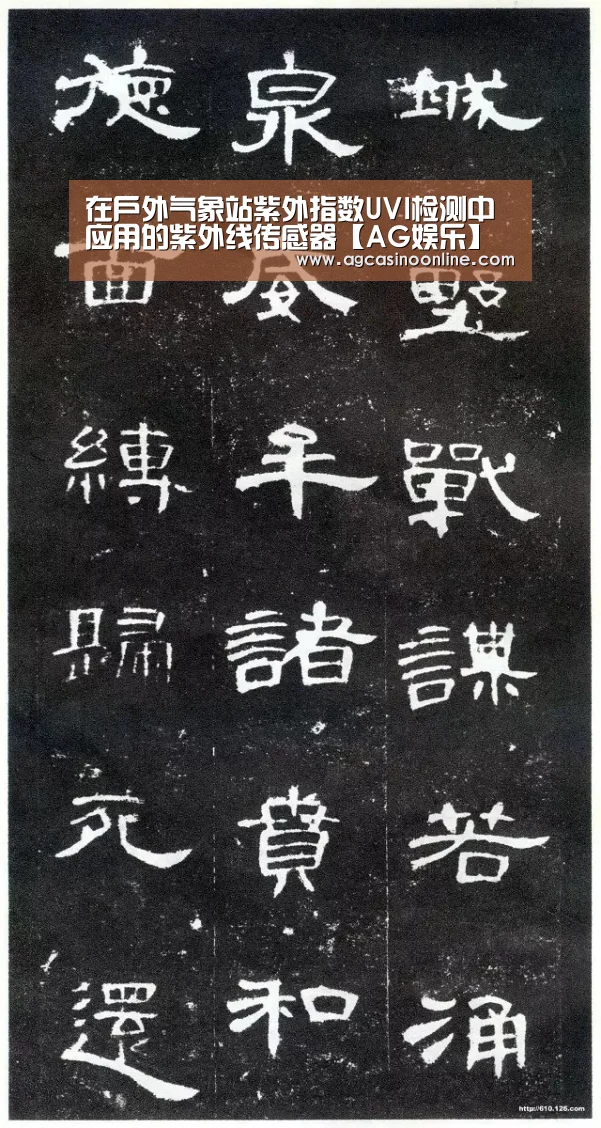 城墅戰謀若涌
泉威牟諸賁和
德面縛歸死還
在戶外气象站紫外指数UVI检测中
应用的紫外线传感器【AG娱乐】
www.agcasinoonline.com
http://610.126.com